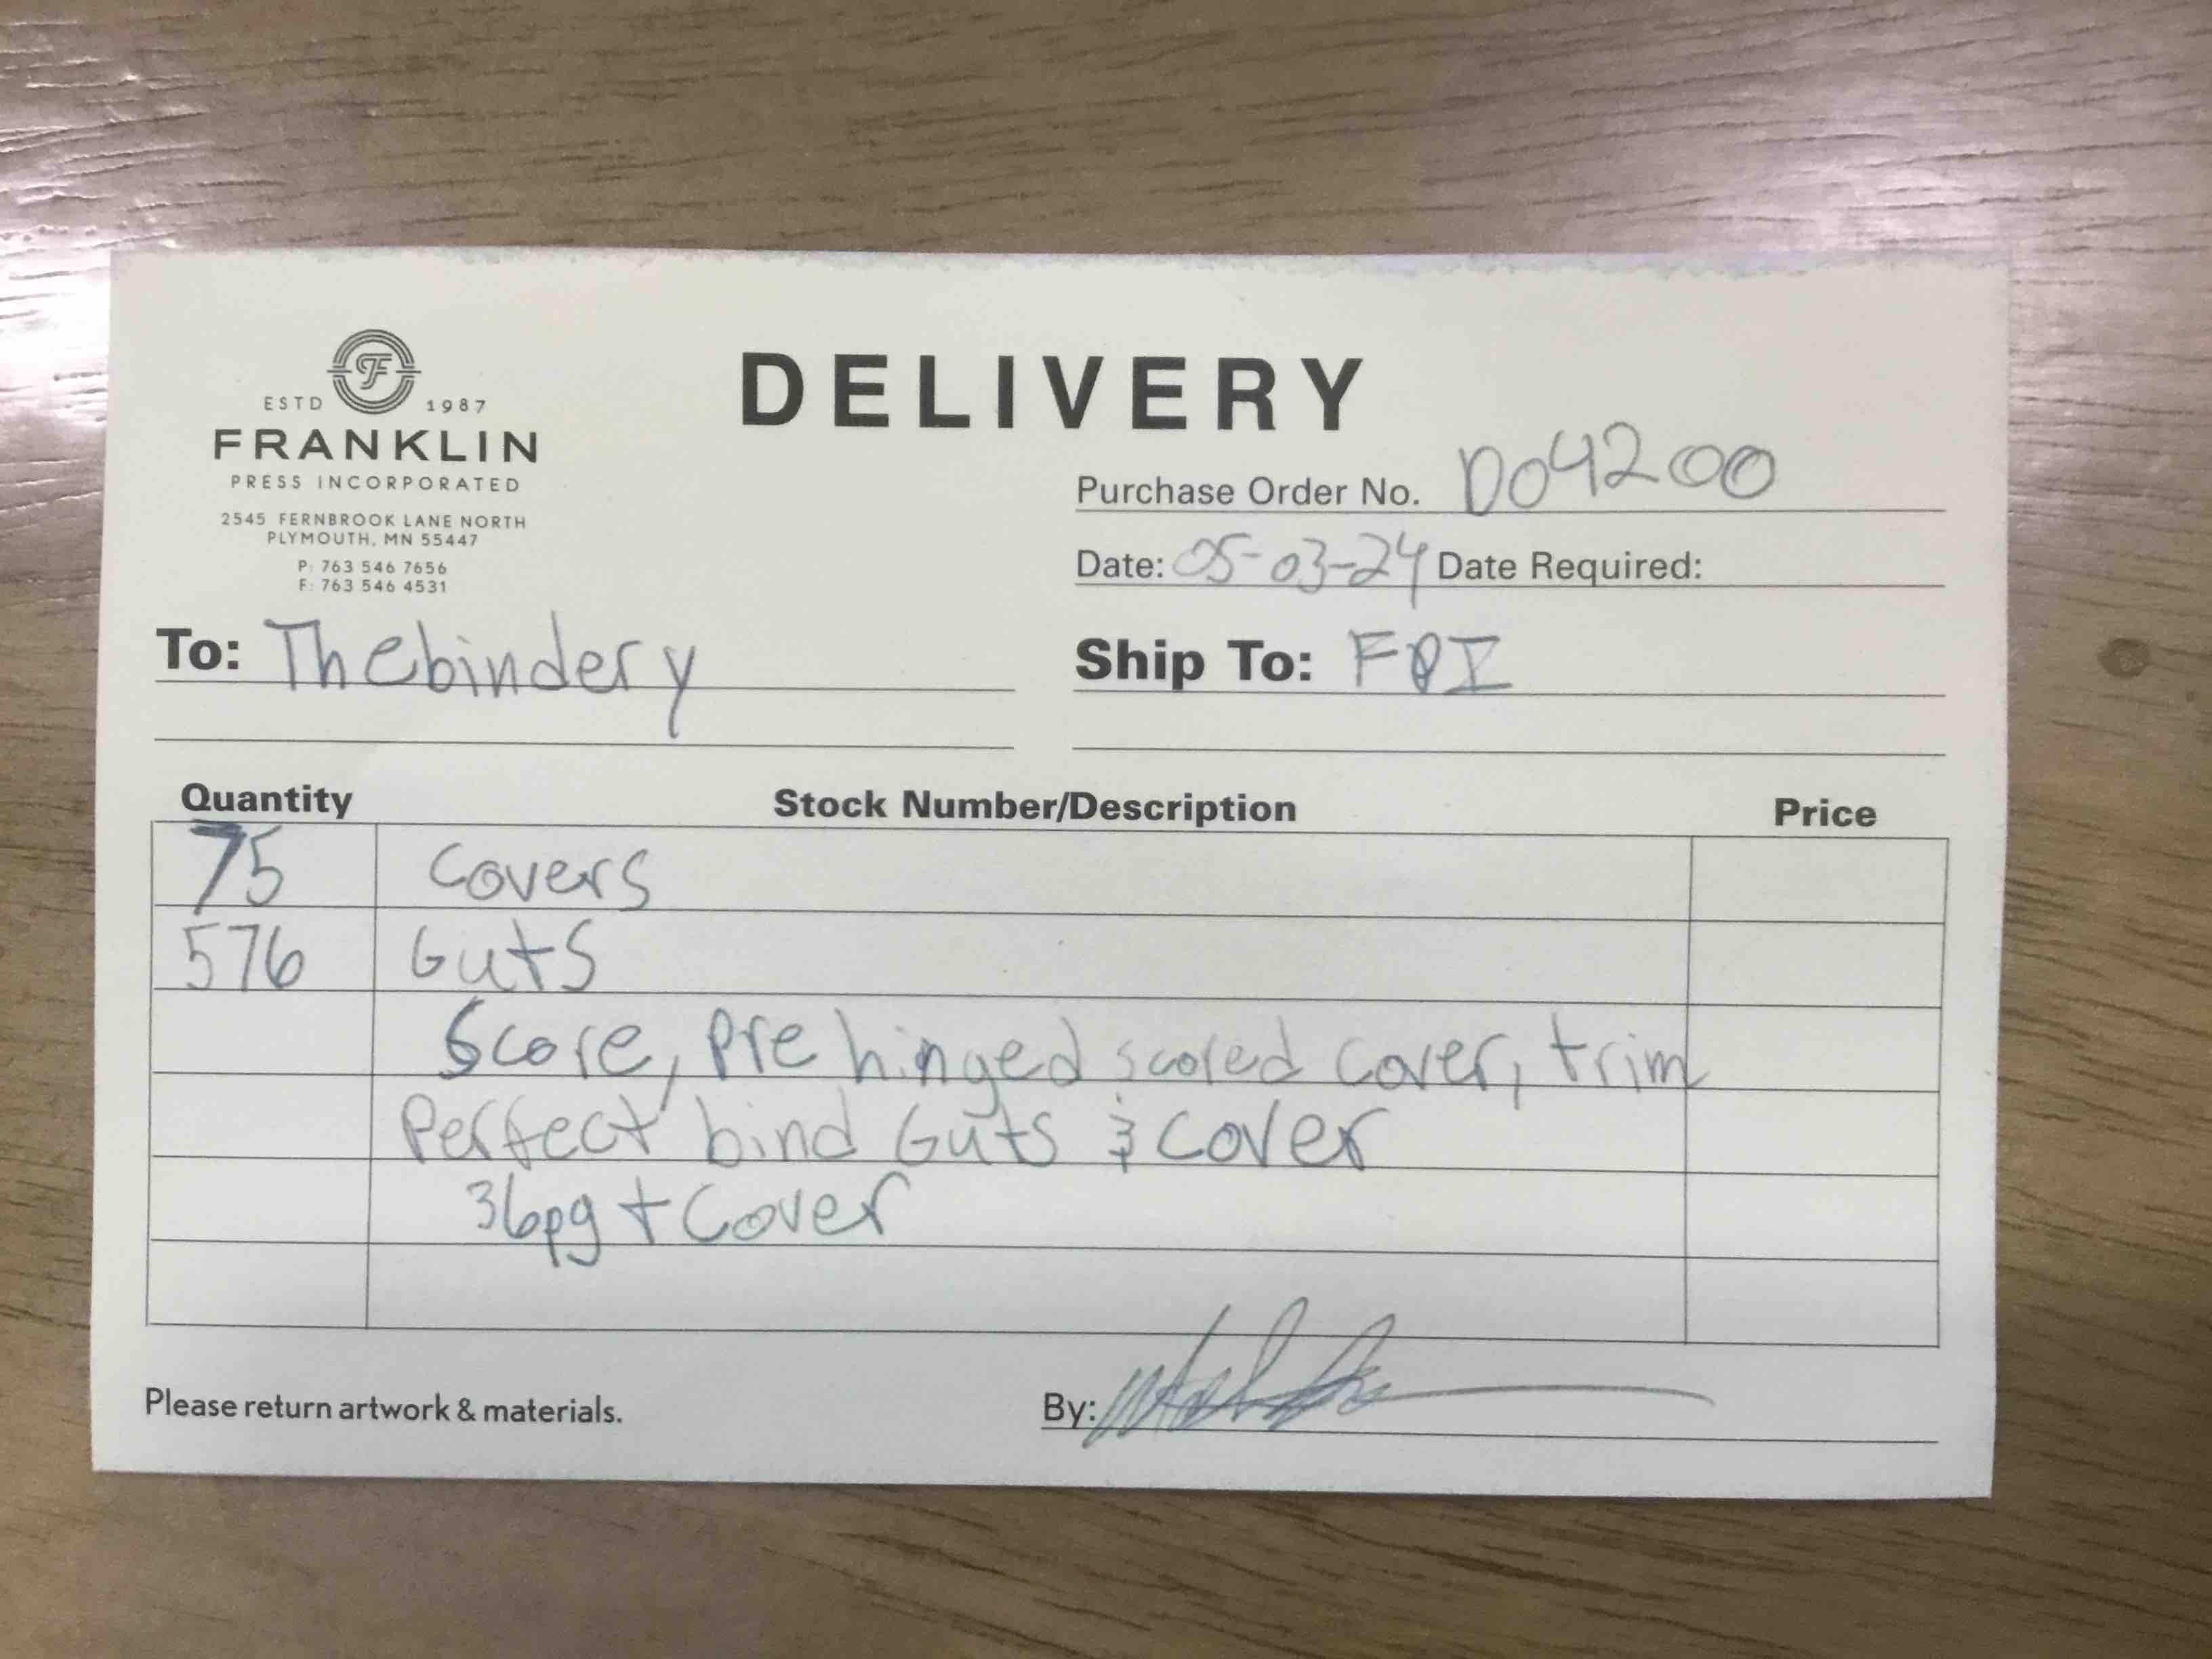 ESTD 1987
FRANKLIN
PRESS INCORPORATED
2545 FERNBROOK LANE NORTH
PLYMOUTH, MN 55447
P: 763 546 7656
F: 763 546 4531
DELIVERY
Purchase Order No. D04200
Date: 05-03-24 Date Required:
To: The bindery
Ship To: FPI
Quantity Stock Number/Description Price
75 Covers
576 Guts
Score, Pre hinged scored cover, trim
Perfect bind Guts & Cover
36pg + Cover
Please return artwork & materials.
By: